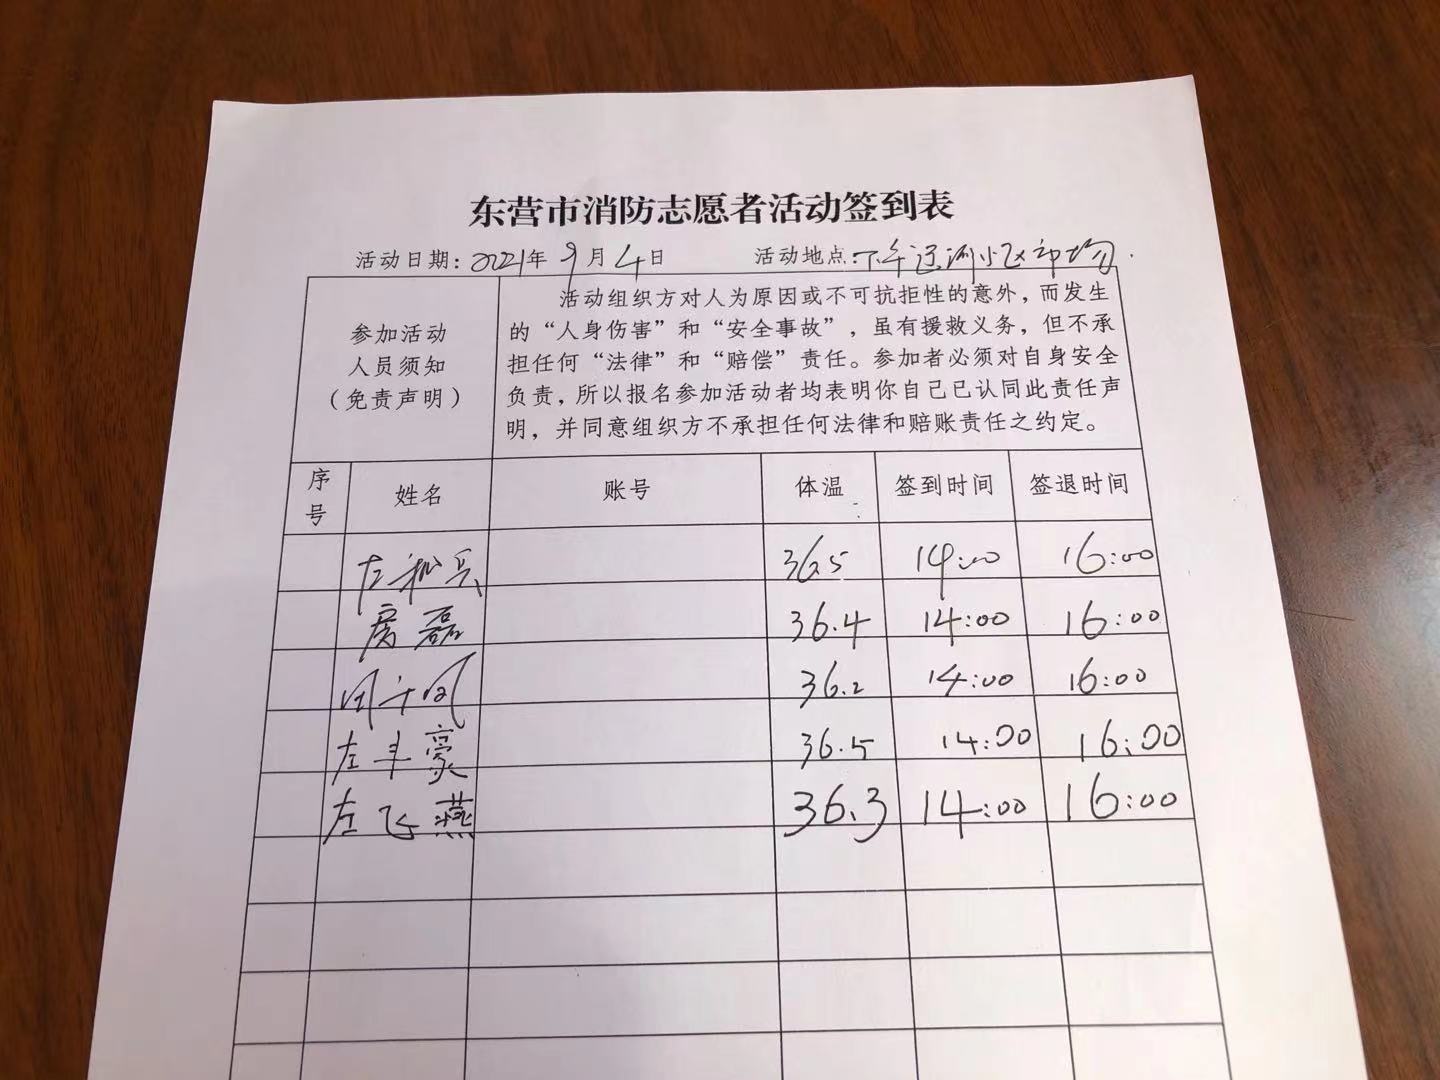 东营市消防志愿者活动签到表
活动日期：2021年9月4日 活动地点：
参加活动
人员须知
（免责声明）
活动组织方对人为原因或不可抗拒性的意外，而发生
的“人身伤害”和“安全事故”，虽有援救义务，但不承
担任何“法律”和“赔偿”责任。参加者必须对自身安全
负责，所以报名参加活动者均表明你自己已认同此责任声
明，并同意组织方不承担任何法律和赔账责任之约定。
序号 姓名 账号 体温 签到时间 签退时间
左 兵 36.5 14:00 16:00
房磊 36.4 14:00 16:00
36.2 14:00 16:00
左丰豪 36.5 14:00 16:00
左飞燕 36.3 14:00 16:00